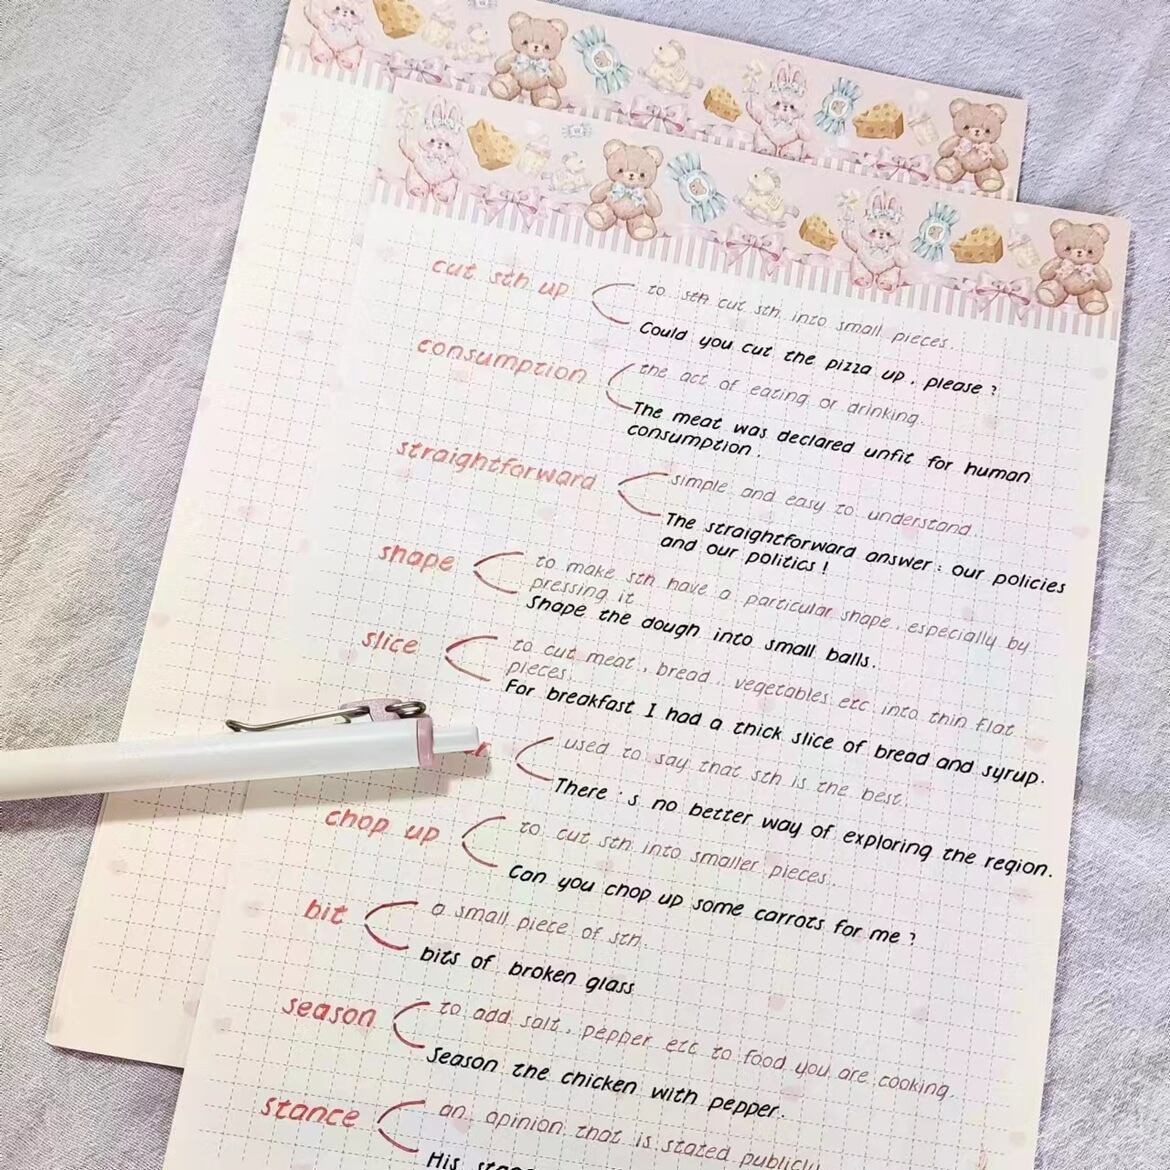 cut sth up
to sth cut sth into small pieces.
Could you cut the pizza up, please?
consumption
the act of eating or drinking.
The meat was declared unfit for human
consumption.
straightforward
simple and easy to understand
The straightforward answer: our policies
and our politics!
shape
to make sth have a particular shape, especially by
pressing it
Shape the dough into small balls.
slice
to cut meat, bread, vegetables etc into thin flat
pieces.
For breakfast I had a thick slice of bread and syrup.
used to say that sth is the best.
There's no better way of exploring the region.
chop up
to cut sth into smaller pieces.
Can you chop up some carrots for me?
bit
a small piece of sth.
bits of broken glass
season
to add salt, pepper etc to food you are cooking.
Season the chicken with pepper.
stance
an opinion that is stated publicly
His